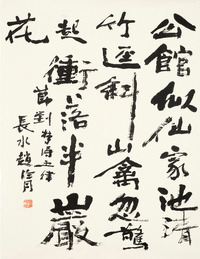 公館似仙家池清
竹逕斜山禽忽驚
起衝落半巖
花
節劉夢得五律
長水趙冷月